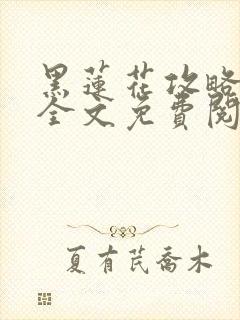 黑蓮花攻略
全文免費閱
夏有芪喬木